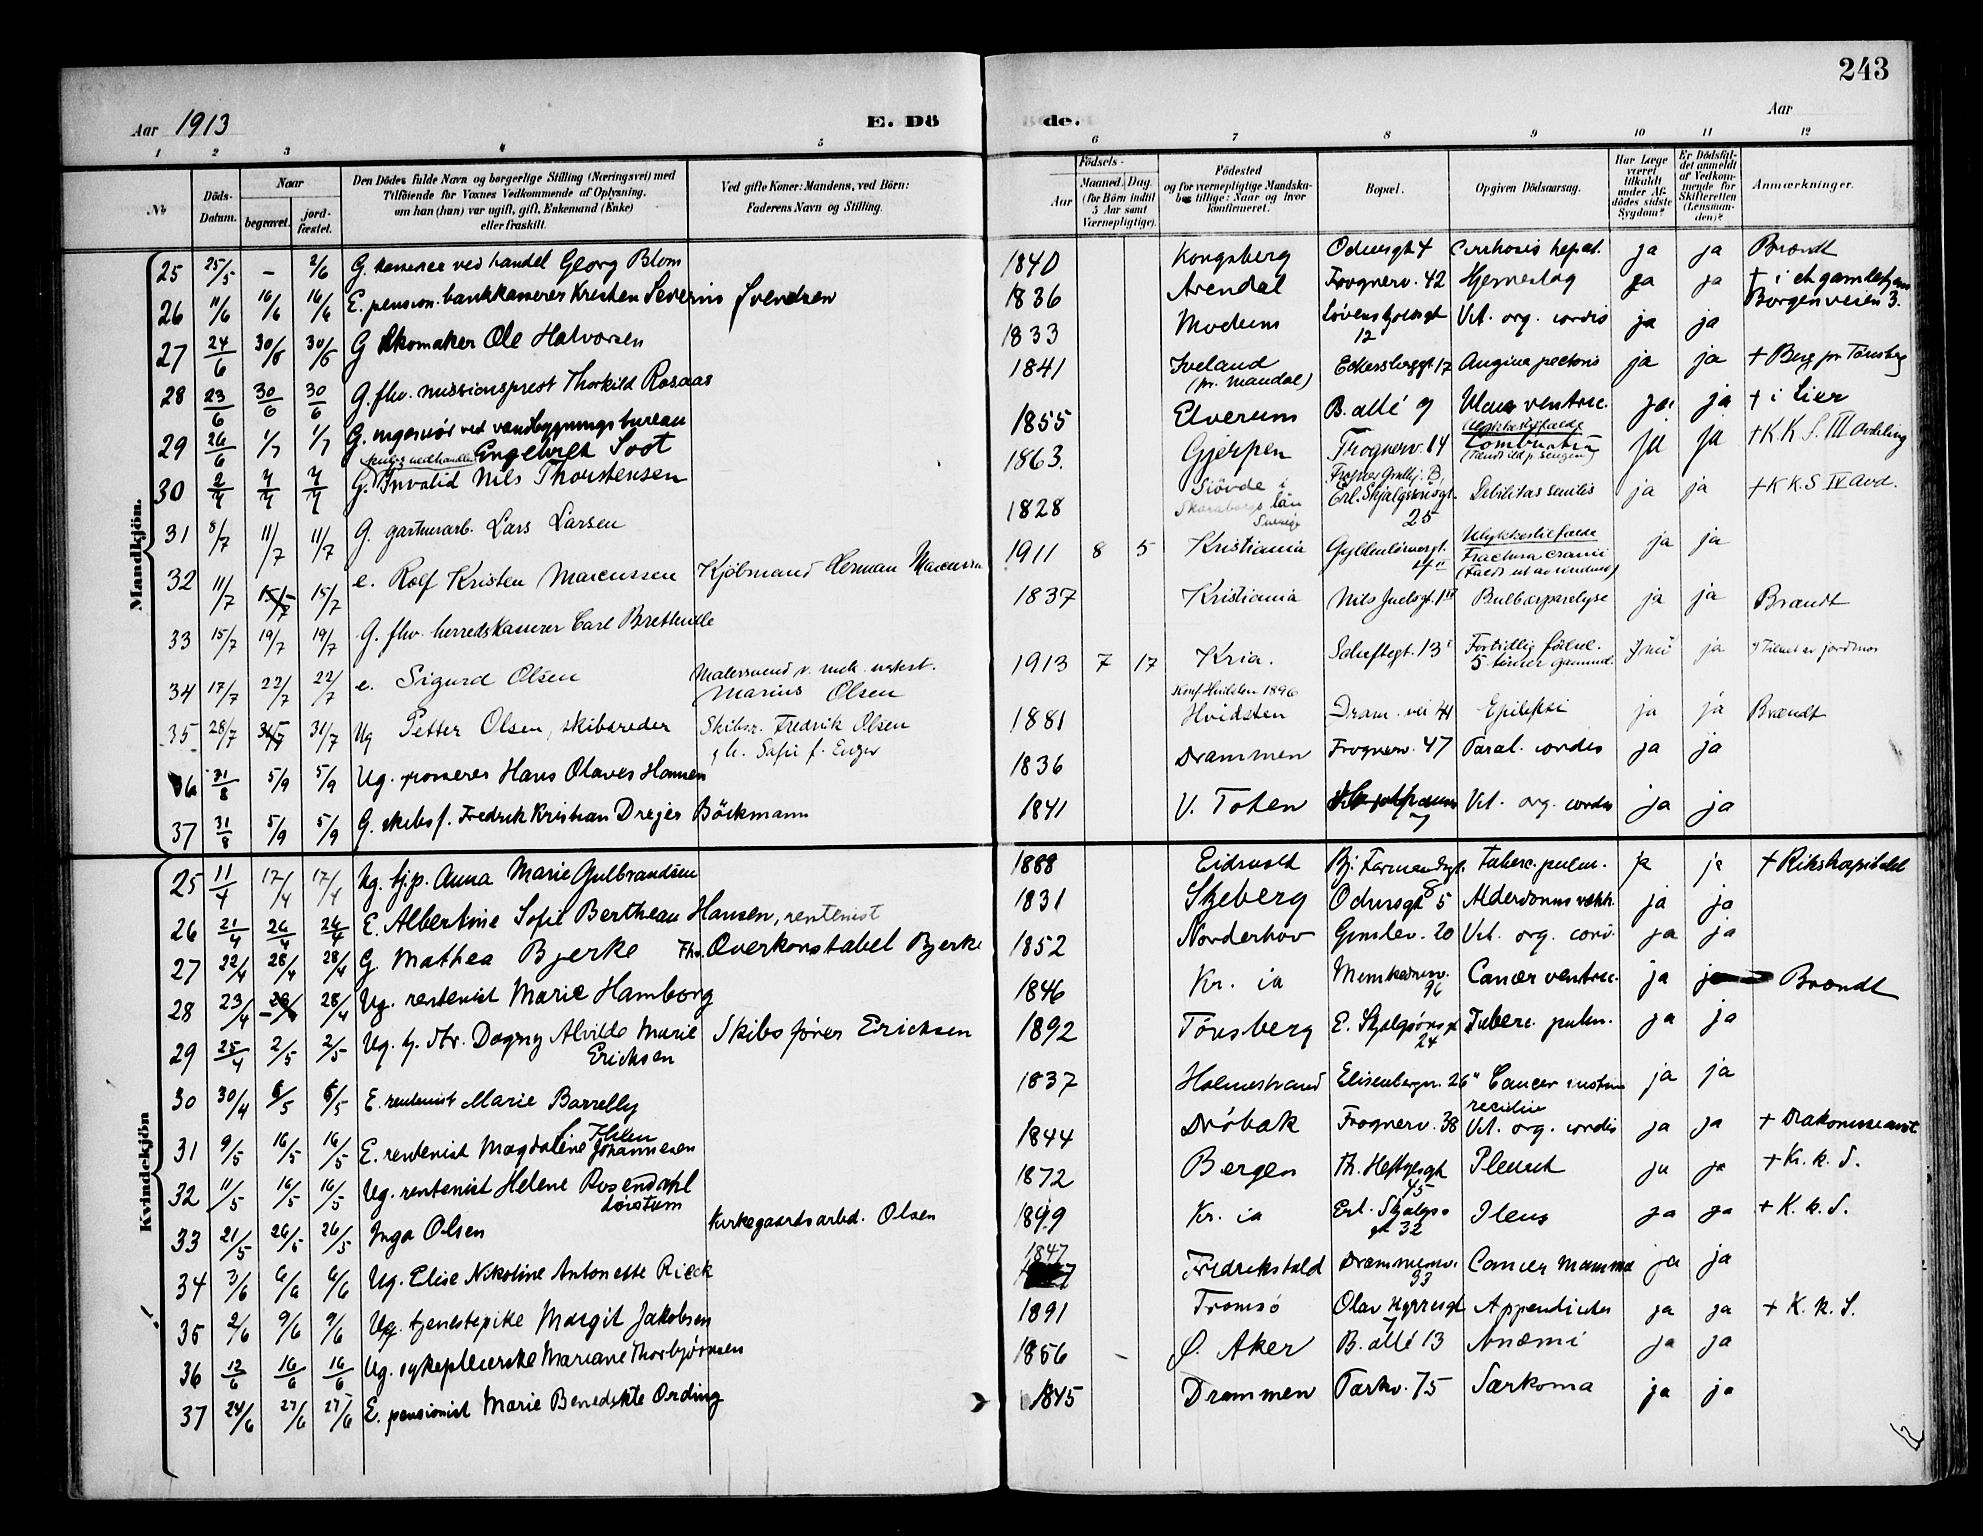 243
Aar 1913
E. Dö
de.
Aar
1 2 3 4 5 6 7 8 9 10 11 12
No
Döds-Datum.
Naar
begravet.
jord-fæstet.
Den Dödes fulde Navn og borgerlige Stilling (Næringsvei) med
Tilföiende for Voxnes Vedkommende af Oplysning,
om han (hun) var ugift, gift, Enkemand (Enke)
eller fraskilt.
Ved gifte Koner: Mandens, ved Börn:
Faderens Navn og Stilling.
Födsels-
Aar
Maaned. Dag.
(for Börn indtil
5 Aar samt
Værnepligtige).
Födested
og for værnepligtige Mandska-
ber tillige: Naar og hvor
konfirmeret.
Bopæl.
Opgiven Dödsaarsag.
Har Læge
været
tilkaldt
under Af-
dödes sidste
Sygdom?
Er Dödsfal-
det anmeldt
af Vedkom-
mende for
Skifteretten
(Lensman-
den)?
Anmærkninger.
Mandkjön.
25 25/5 – 2/6 G. kasserer ved handel Georg Blom 1840 Kongsberg Odinsgt 4 Cirrhosis hepat. ja ja Brændt
26 11/6 16/6 16/6 E. pension. bankkasserer Kristen Severin Svendsen 1836 Arendal Frognerv. 42 Hjerneslag ja ja † i et gamlehjem Borgenveien 3.
27 24/6 30/6 30/6 G Skomaker Ole Halvorsen 1833 Modum Løvenskioldsgt 12 Vit. org. cordis ja ja
28 23/6 30/6 30/6 G. fhv. missionsprest Thorkild Rosaas 1841 Iveland (pr. Mandal) Eckersbergsgt 17 Angina pectoris ja ja † Berg pr Tønsberg
29 26/6 1/7 1/7 G. ingeniør ved vandbygningsbureau Engelhilt Soot 1855 Elverum B. allé 9 Ulcus ventric. ja ja † i Lier
30 2/7 7/7 7/7 G. Invalid Nils Thorstensen 1863. Gjerpen Frognerv. 14 Ulykkestilfælde Combustio ja ja † K. K. S. III avdeling
31 8/7 11/7 11/7 G. gartnerarb. Lars Larsen 1828 Skövde i Skaraborgs län Sverige Erl. Skjalgsønsgt. 25 Debilitas senilis ja ja † K K. S IV Avd.
32 11/7 15/7 15/7 e. Rolf Kristen Marcussen Kjøbmand Herman Marcussen 1911 8 5 Kristiania Gyldenløvesgt. Ulykkestilfælde Fractura cranii (Faldt ut av vindue) ja ja
33 15/7 19/7 19/7 G. fhv. herredskasserer Carl Bretteville 1837 Kristiania Nils Juelsgt. Bulbærparalyse ja ja Brændt
34 17/7 22/7 22/7 e. Sigurd Olsen Malersvend v. mek. verkst. Marius Olsen 1913 7 17 Kria. Schultzgt. 13 Fortidlig fødsel. 5 timer gammel. ja
35 28/7 31/7 31/7 Ug Petter Olsen, skibsreder Skibsr. Fredrik Olsen 1881 Konf Hvidsten 1896 Hvidsten Dram. vei 44 Epilepsi ja ja Brændt
36 31/8 5/9 5/9 Ug. Hans Olaves Hansen 1836 Drammen Frognerv. 47 Paral. cordis ja ja
37 31/8 5/9 5/9 G. skibsf. Fredrik Kristian Dreyer Böckmann 1841 V. Toten Vit. org. cordis ja ja
Kvindekjön
25 11/4 17/4 17/4 Ug. tjp. Anna Marie Gulbrandsen 1888 Eidsvold Bj. Farmandsgt. 8 Tuberc. pulm. ja ja † Rikshospitalet
26 21/4 26/4 26/4 E. Albertine Sofie Bertheau Hansen, rentenist 1831 Skjeberg Odinsgt 5 Alderdomssvækk. ja ja
27 22/4 28/4 28/4 G. Mathea Bjerke Fhv. Overkonstabel Bjerke 1852 Norderhov Gimlev. 20 Vit. org. cord. ja ja
28 23/4 28/4 28/4 Ug. rentenist Marie Hamborg 1846 Kr. ia Munkedamsv. 96 Cancer ventric. ja ja Brændt
29 25/4 2/5 2/5 Ug. Dagny Alvilde Marie Ericksen Skibsfører Ericksen 1892 Tönsberg E. Skjalgsønsgt 24 Tuberc. pulm. ja ja
30 30/4 6/5 6/5 E. rentenist Marie Borrelly 1837 Holmestrand Elisenbergv. 26 Cancer recidiv ja ja
31 9/5 16/5 16/5 E. rentenist Magdaléne Thilen Johannesen 1844 Dröbak Frognerv. 38 Vit. org. cordis ja ja † Diakonisseanst.
32 11/5 16/5 16/5 Ug. rentenist Helene Rosendahl Löestum 1872 Bergen Th. Heftyesgt 45 Pleurit ja ja † K. k. S.
33 21/5 26/5 26/5 Inga Olsen Kirkegaardsarbd. Olsen 1849 Kr. ia Erl. Skjalgs. gt 32 Ileus ja ja † K. k. S.
34 3/6 6/6 6/6 Ug. Elise Nikoline Antonette Rieck 1847 Fredrikshald Drammensv. 93 Cancer Mamma ja ja
35 2/6 9/6 9/6 Ug. tjenestepike Margit Jakobsen 1891 Tromsö Olav Kyrresgt 7 Appendicitis ja ja † K. k. S.
36 12/6 16/6 16/6 Ug. sykepleierske Mariane Thorbjørnsen 1856 Ø. Aker B. allé 13 Anæmi ja ja
37 24/6 27/6 27/6 E. pensionist Marie Benedikte Ording 1845 Drammen Parkv. 75 Sarkoma ja ja